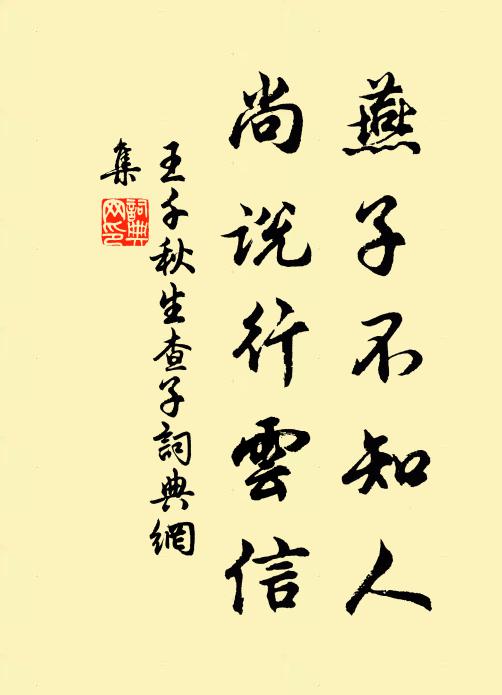 燕子不知人
尚說行雲信
王千秋生查子詞典網
集
詞典
网印